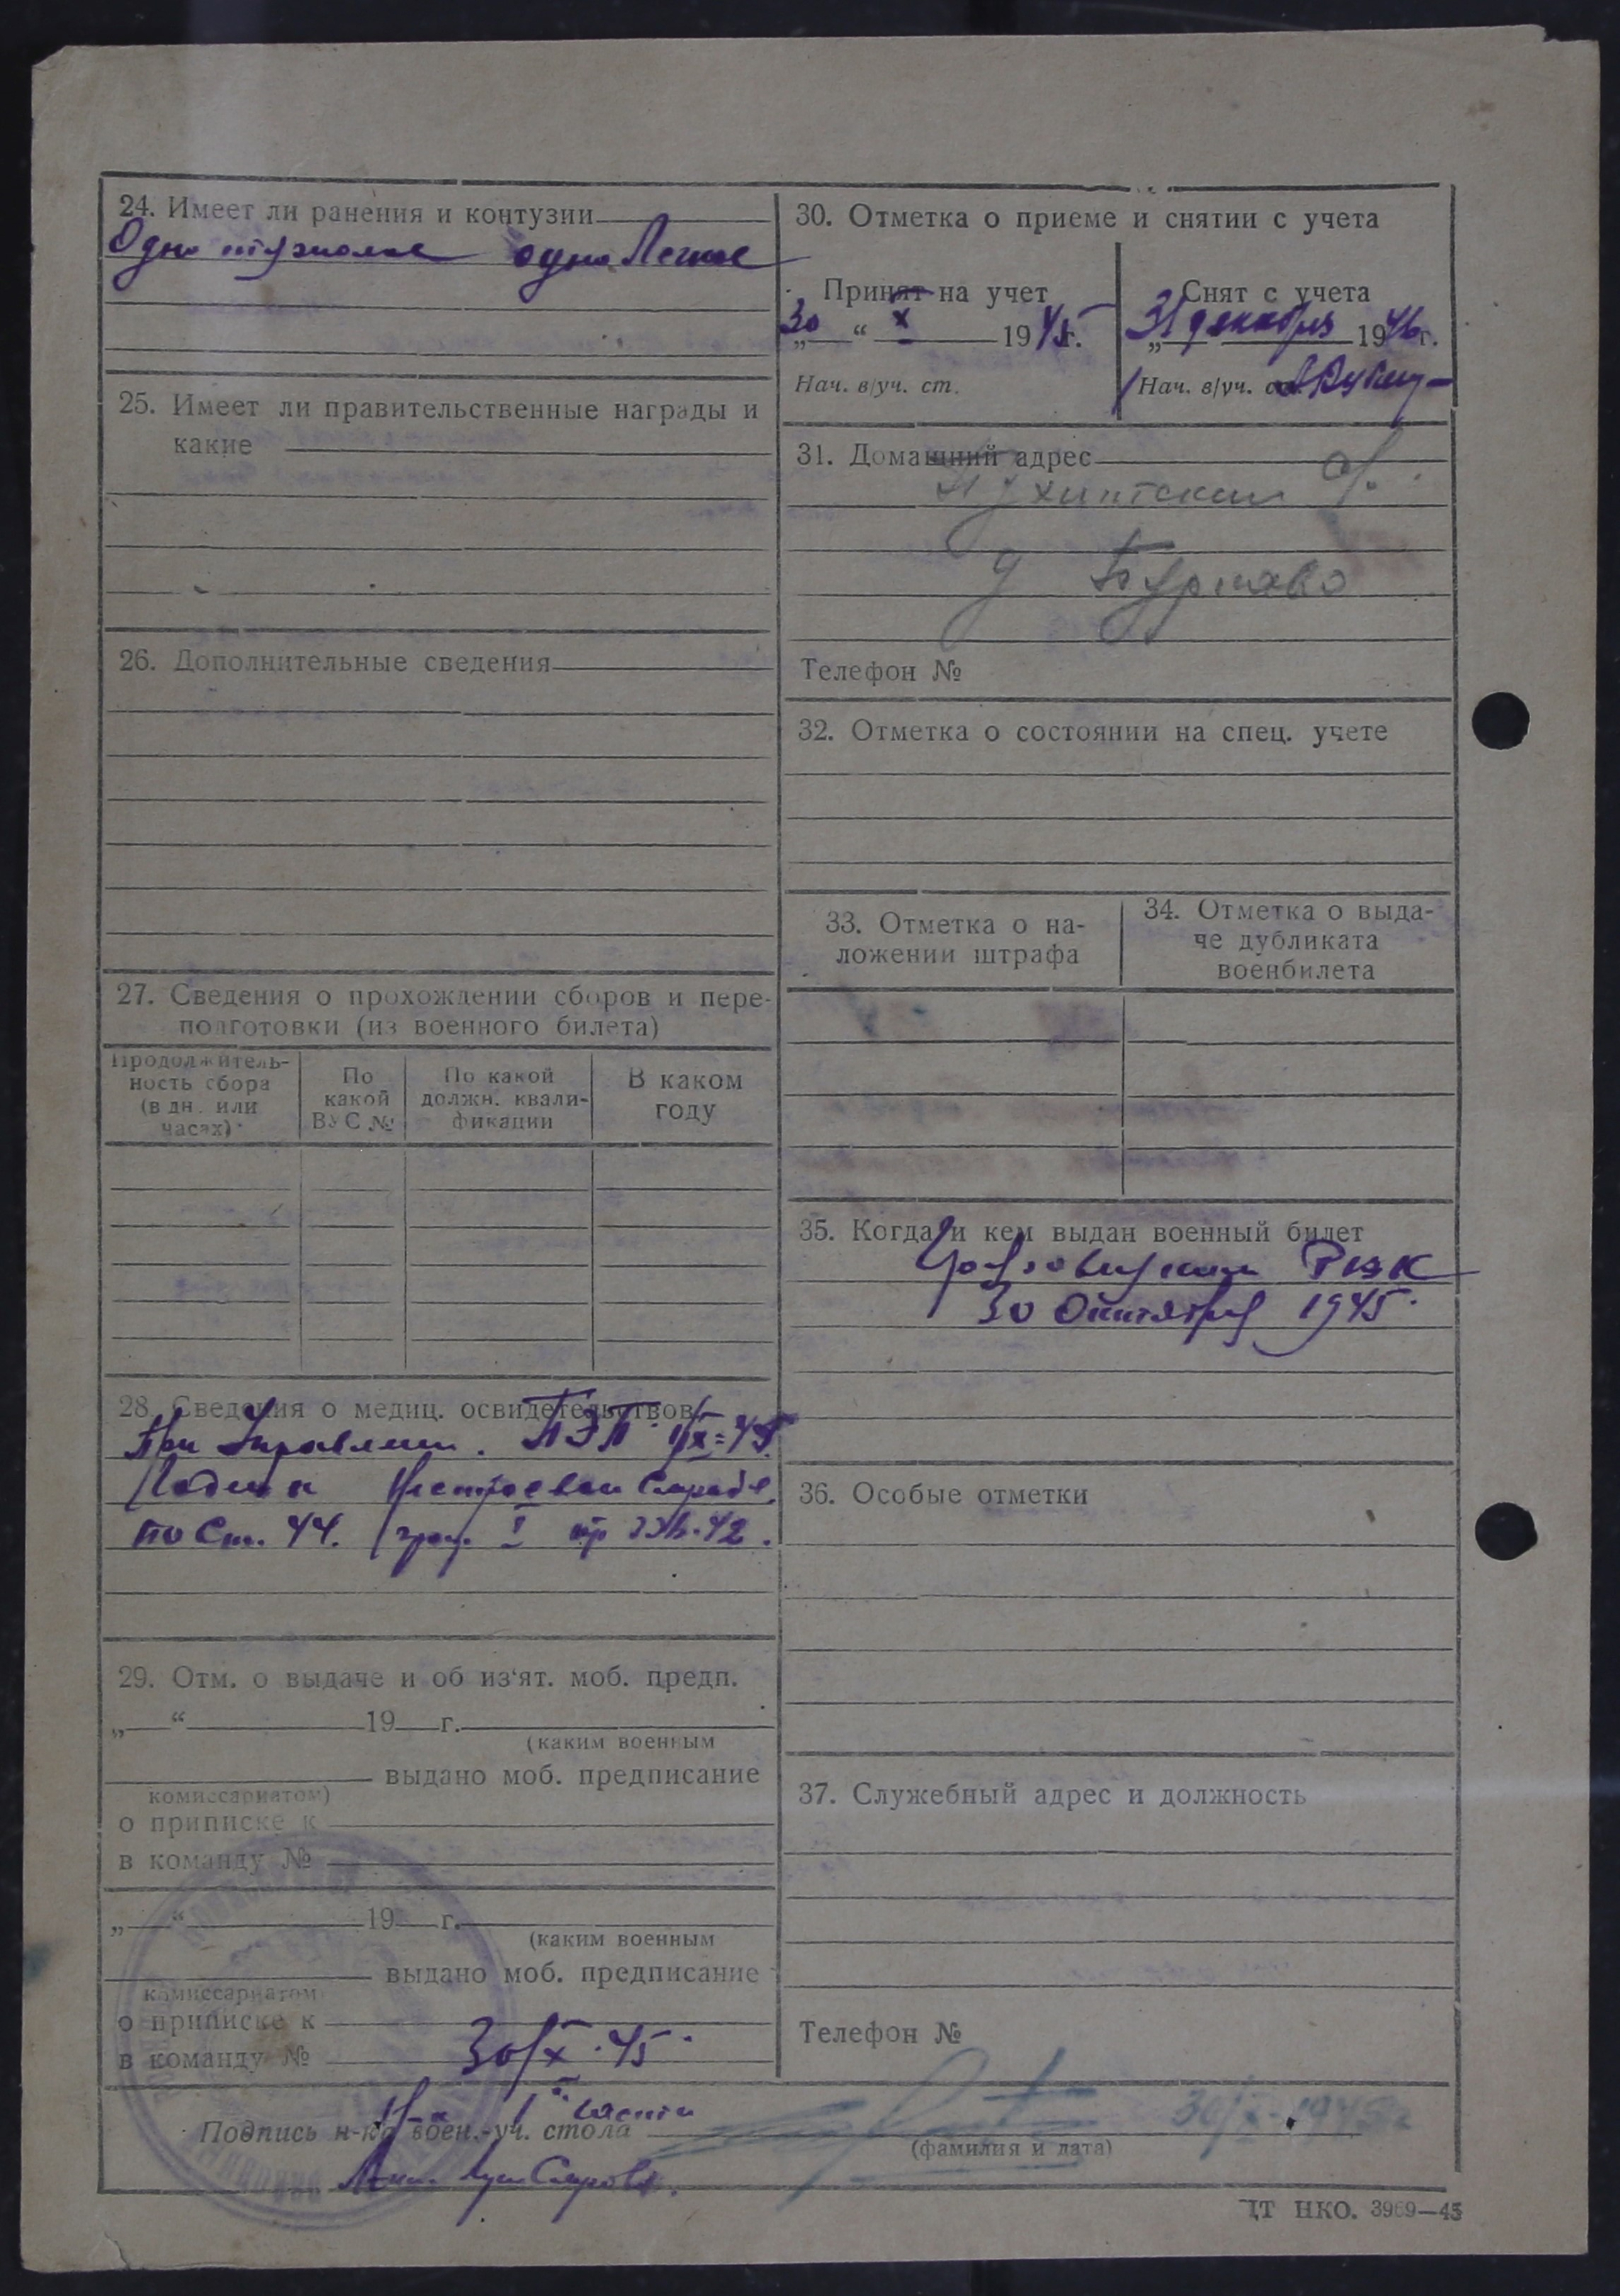 24. Имеет ли ранения и контузии
Одно тяжолое одно Легкое
25. Имеет ли правительственные награды и
какие
26. Дополнительные сведения
27. Сведения о прохождении сборов и пере-
подготовки (из военного билета)
Продолжитель-
ность сбора
(в дн. или
часах)
По
какой
ВУС №
По какой
должн. квали-
фикации
В каком
году
28. Сведения о медиц. освидетельствов.
При Управлении. ПЭП
Годен к Нестроевой Службе.
по Ст. 44. граф. I пр 336-42.
29. Отм. о выдаче и об из'ят. моб. предп.
„ “ 19 г.
(каким военным
выдано моб. предписание
комиссариатом)
о приписке к
в команду №
„ “ 19 г.
(каким военным
выдано моб. предписание
комиссариатом
о приписке к
в команду № 30/X.45
30. Отметка о приеме и снятии с учета
Принят на учет
30 “ X 1945г.
Нач. в/уч. ст.
Снят с учета
„31 декабря 1946г.
Нач. в/уч. ст.
31. Домашний адрес
д Бурнаво
Телефон №
32. Отметка о состоянии на спец. учете
33. Отметка о на-
ложении штрафа
34. Отметка о выда-
че дубликата
военбилета
35. Когда и кем выдан военный билет
РВК
30 Октября 1945
36. Особые отметки
37. Служебный адрес и должность
Телефон №
Н-к 1й части
Подпись н-ка воен.-уч. стола 30/X-1945г
(фамилия и дата)
ЦТ НКО. 3969—45